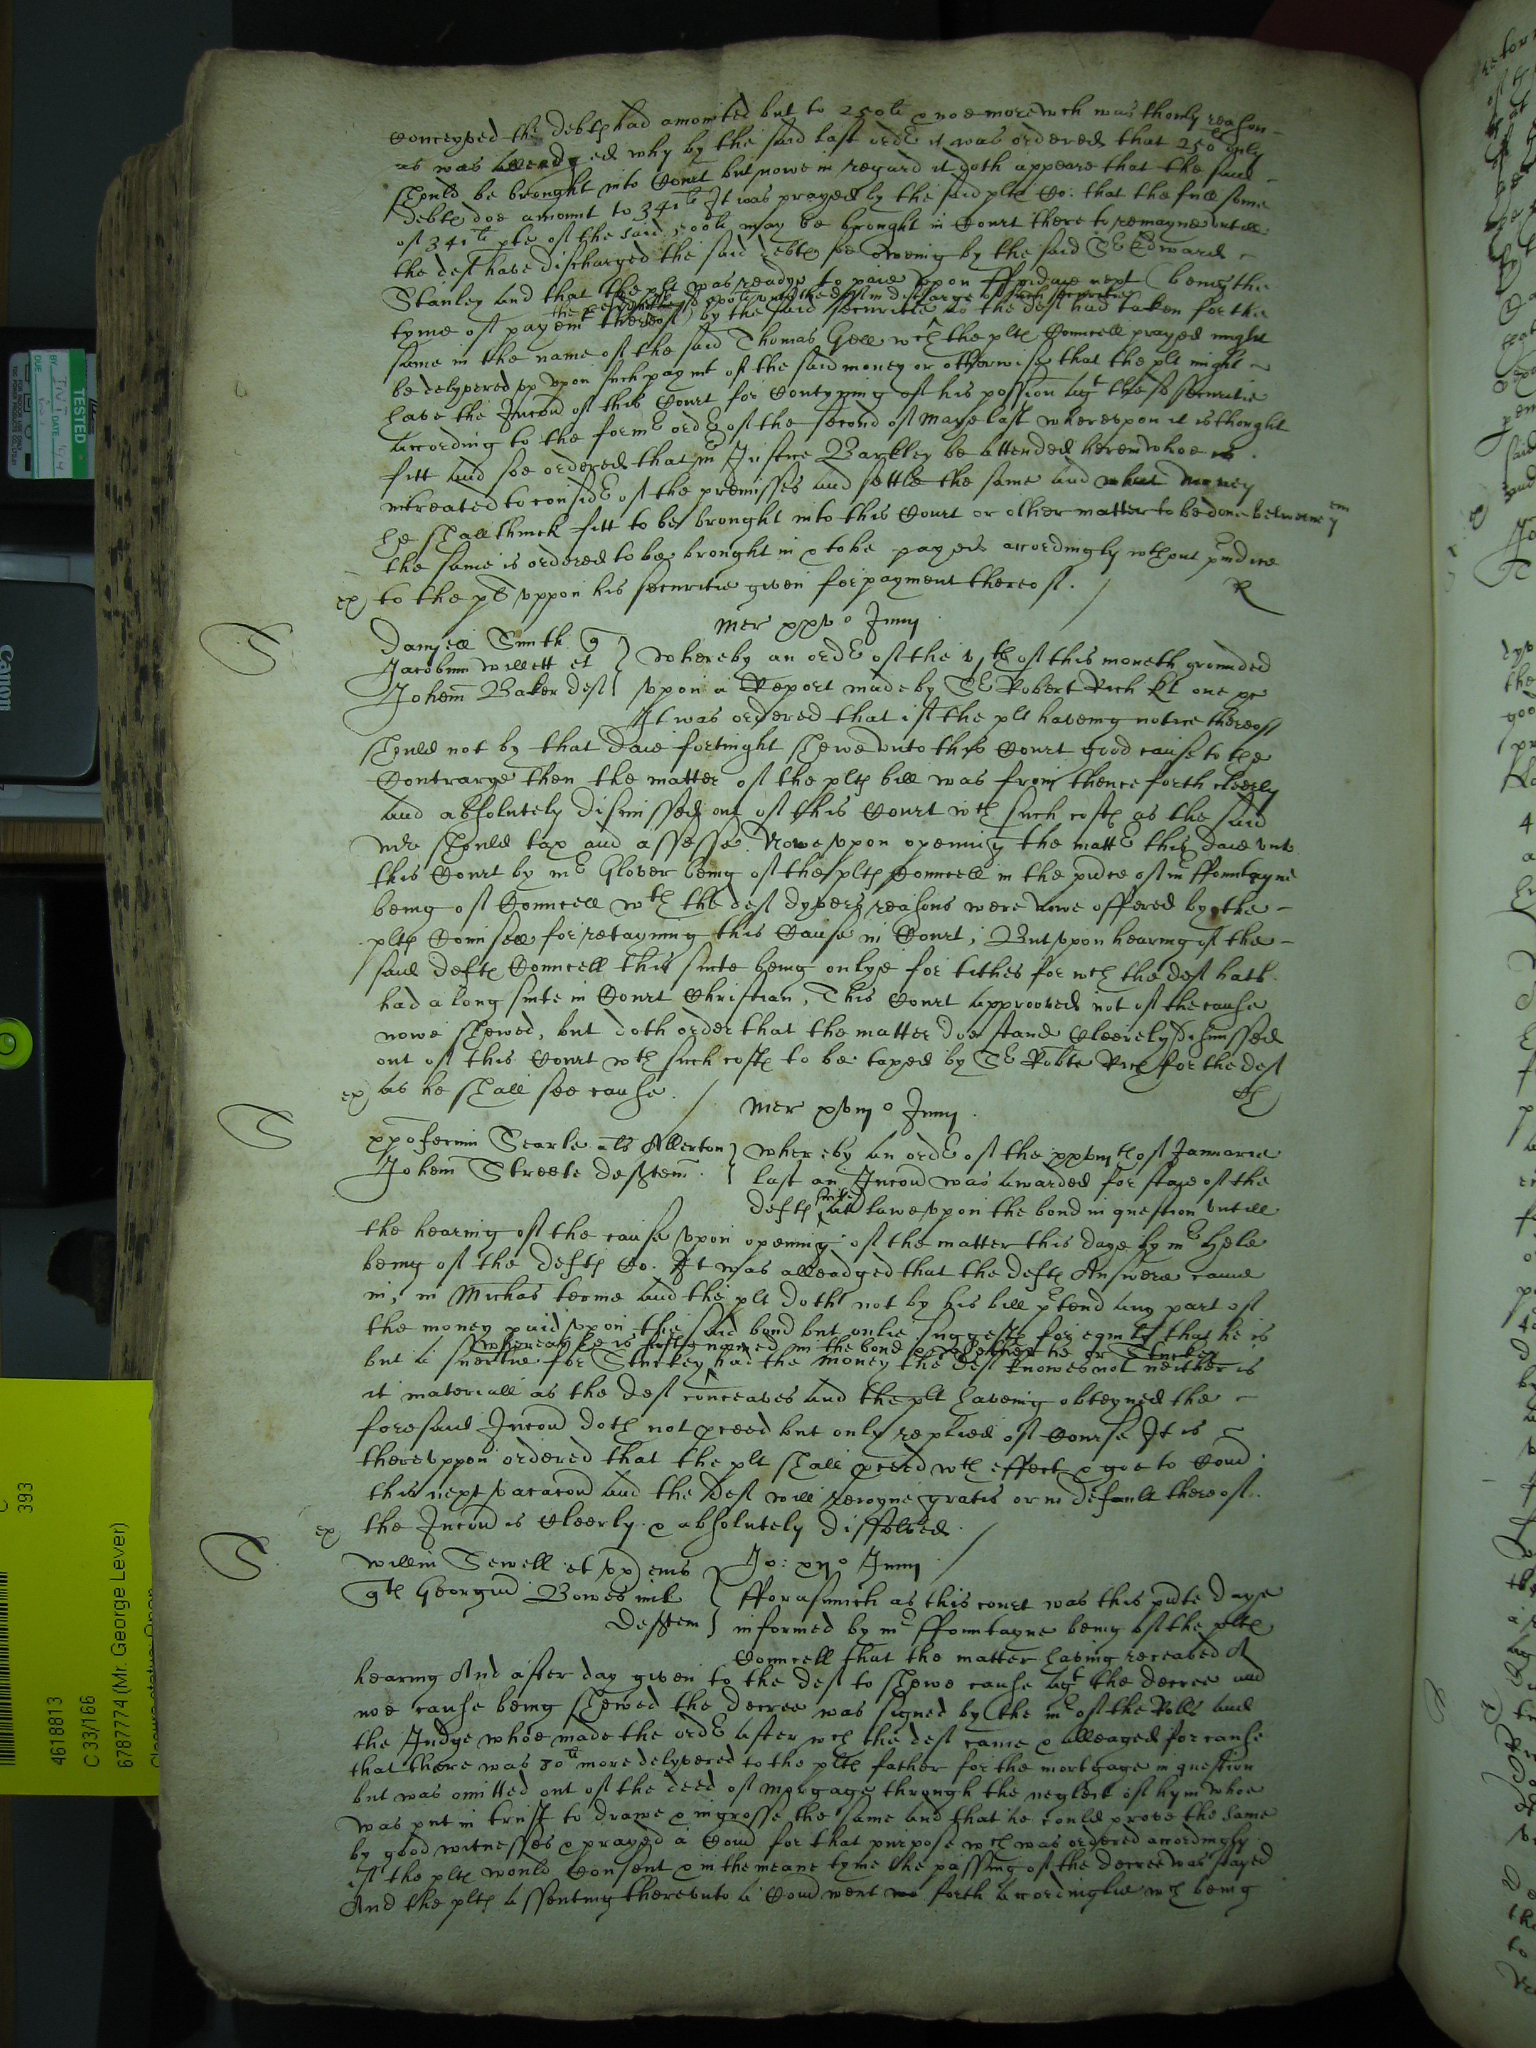 conceyved the debts had amounted but to 250li & noe more wch was thonly reason
as was alleadged why by the said last ordr it was ordered that 250li only
should be brought into Court but nowe in regard it doth appeare that the said
debts doe amount to 341li It was prayed by the said plts Co: that the full some
of 341li pte of the said 500li may be brought in Court there to remayne untill
the deft have discharged the said debts soe oweing by the said Sr Edward
Stanley and that the plt was readye to paie upon next being the
tyme of payemt thereof by the said securitie as the deft had taken for the
same in the name of the said Thomas Gell wch the plts Councell prayed might
be delyvered up upon such paymt of the said money or otherwise that the plt might
have the Iniuncon of this Court for contynuing of his possion agt the securitie
according to the former ordr of the second of Maye last whereupon it is thought
fitt and soe ordered that mr Justice Barkley be attended herein whoe is
intreated to considr of the premisses and settle the same and what money
he shall thinck fitt to be brought into this Court or other matter to be done betweene em
the same is ordered to be brought in & to be payed accordingly wthout piudice
to the pt uppon his securitie given for payment thereof. R
ex)
Mer xxvo Junij
Danyell Smith q
Jacobum Willett et } Whereby an ordr of the vjth of this moneth grounded
Johem Baker deft } upon a Report made by Sr Robert Rich kt one &c
It was ordered that if the plt haveing notice thereof
should not by that daie fortnight shewe unto this Court good cause to the
Contrarye then the matter of the plts bill was from thence forth cleerly
and absolutely dismissed out of this Court wth such costs as the said
Mr should tax and assesse. Nowe upon opening the mattr this daie unto
this Court by mr Glover being of the plts Councell in the pnce of mr ffountayne
being of Councell wth the deft dyvers reasons were nowe offered by the
plts Counsell for retayning this Cause in Court, But upon hearing of the
said defts Councell this suite being onlye for tithes for wch the deft hath
had a long suite in Court Christian, This Court approoved not of the cause
nowe shewed, but doth order that the matter doe stand cleerely dismissed
out of this Court wth such costs to be taxed by Sr Robte Rich for the deft
ex) as he shall see cause.
Mer xviijo Junij
xpoferum Searle als Allerton } Whereby an ordr of the xxviijth of Januarie
Johem Streete defttem } last an Iniuncon was awarded for staie of the
defts suite att lawe upon the bond in question untill
the hearing of the cause upon opening of the matter this daye by mr Hele
being of the defts Co. It was alleadged that the defts Answere came
in, in Michas terme and the plt doth not by his bill ptend any part of
the money paid upon the said bond but onlie suggests for equity that he is
whereas he is first named in the bond & whether he or Stuckey
but a suertie for Stuckey had the money the deft knowes not neither is
it materiall as the deft conceaves and the plt haveing obteyned the
foresaid Iniuncon doth not pceed but only replied of course It is
thereuppon ordered that the plt shall pceed wth effect & goe to Com
this next vacacon and the deft will reioyne gratis or in default thereof
ex) the Iniuncon is cleerly & absolutely dissolved.
Willm Sewell et ux } Jo: xijo Junij
qts Georgiu Bowes mil } fforasmuch as this court was this pnte daye
defttem } informed by mr ffountayne being of the plts
Councell that the matter having receaved A
hearing And after day given to the deft to shewe cause agt the decree and
noe cause being shewed the decree was signed by the mr of the Rolls and
the Judge whoe made the ordr after wch the deft came & alleaged for cause
that there was 80li more delyvered to the plts father for the mortgage in question
but was omitted out of the deed of mortgage through the neglect of hym whoe
was put in trust to drawe & ingrosse the same and that he could prove the same
by good witnesses & prayed a Com for that purpose wch was ordered accordingly
if the plts would Consent & in the meane tyme the passing of the decree was stayed
And the plts assenting thereunto a Com went forth accordinglie wch being
TESTED
Canon
393
4618813
C 33/166
6787774 (Mr. George Lever)